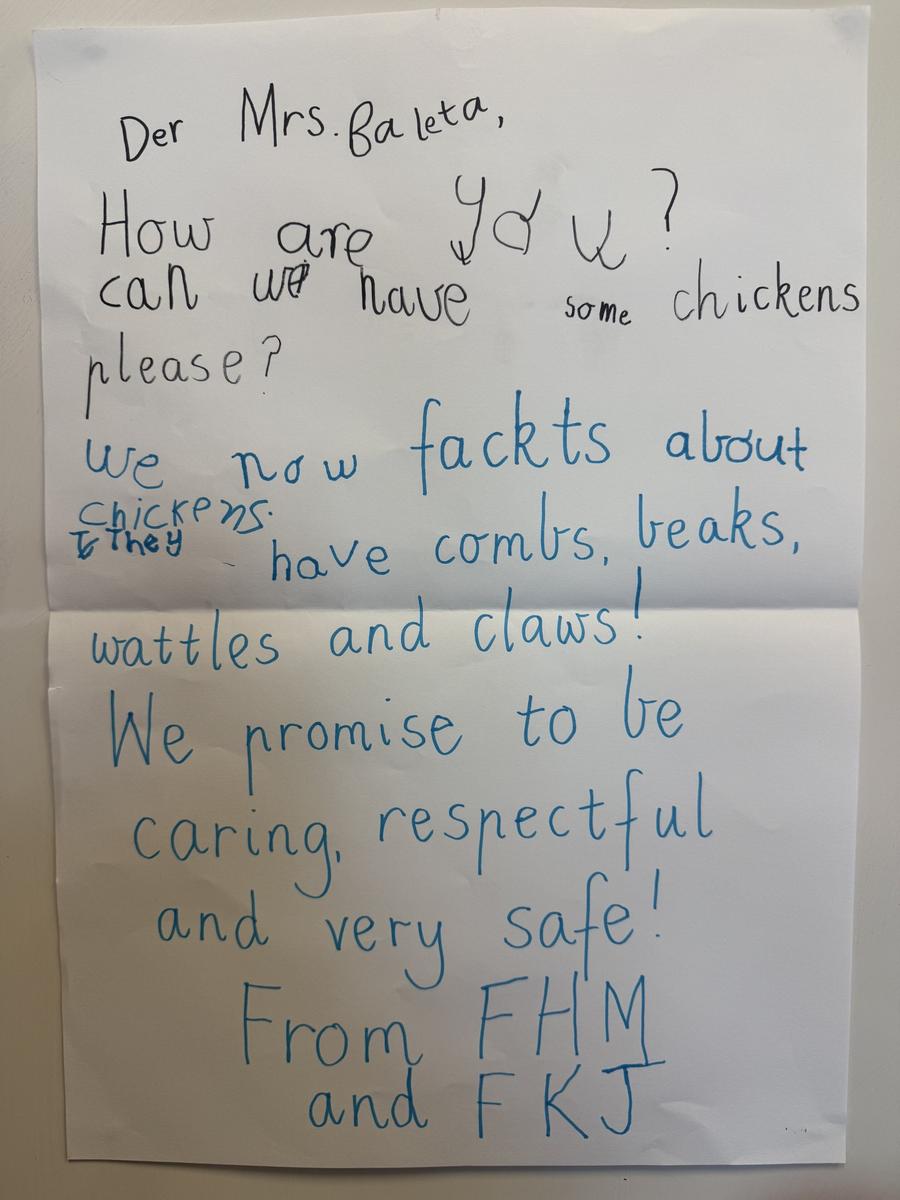 Der Mrs. Baleta,
How are you?
can we have some chickens
please?
we now fackts about
chickens.
They have combs, beaks,
wattles and claws!
We promise to be
caring, respectful
and very safe!
From FHM
and FKJ